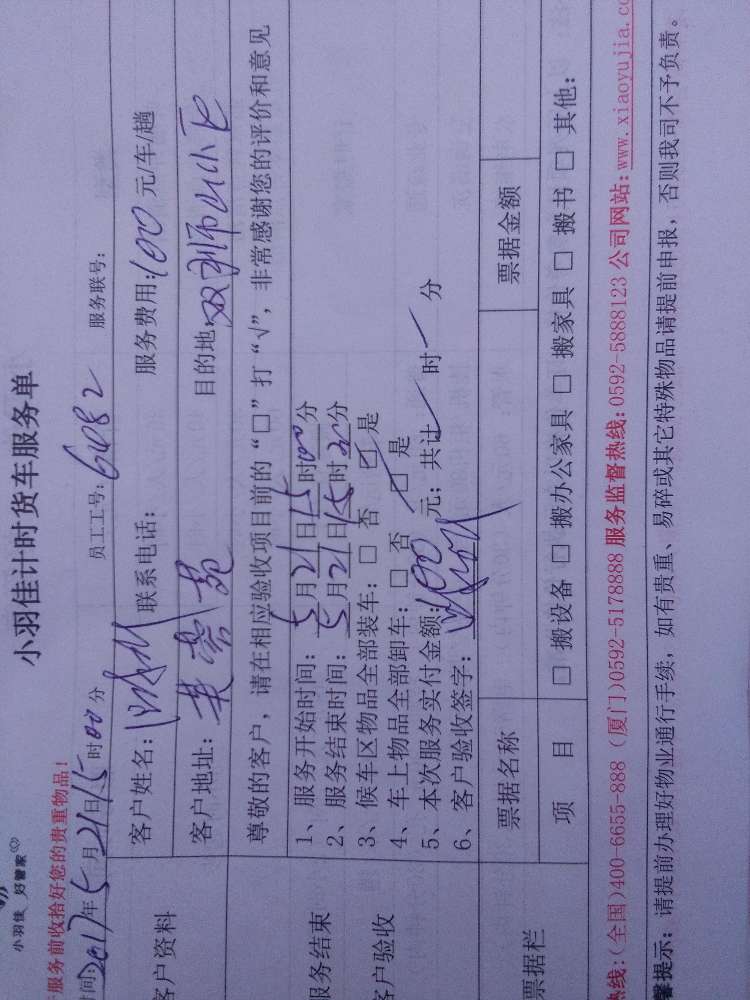 小羽佳 好管家
小羽佳计时货车服务单
服务前收拾好您的贵重物品！
时间:2017年5月21日15时00分 员工工号:6082 服务联号:
客户资料
客户姓名: 联系电话: 服务费用:100元/车/趟
客户地址: 目的地:
服务结束
客户验收
尊敬的客户，请在相应验收项目前的“□”打“√”，非常感谢您的评价和意见
1、服务开始时间: 5月21日15时00分
2、服务结束时间: 5月21日15时30分
3、候车区物品全部装车: □ 否 ☑ 是
4、车上物品全部卸车: □ 否 ☑ 是
5、本次服务实付金额:100元; 共计/时/分
6、客户验收签字:
票据栏
票据名称 票据金额
项 目 □ 搬设备 □ 搬办公家具 □ 搬家具 □ 搬书 □ 其他:
热线:(全国)400-6655-888 (厦门)0592-5178888 服务监督热线:0592-5888123 公司网站:www.xiaoyujia.co
馨提示: 请提前办理好物业通行手续，如有贵重、易碎或其它特殊物品请提前申报，否则我司不予负责。